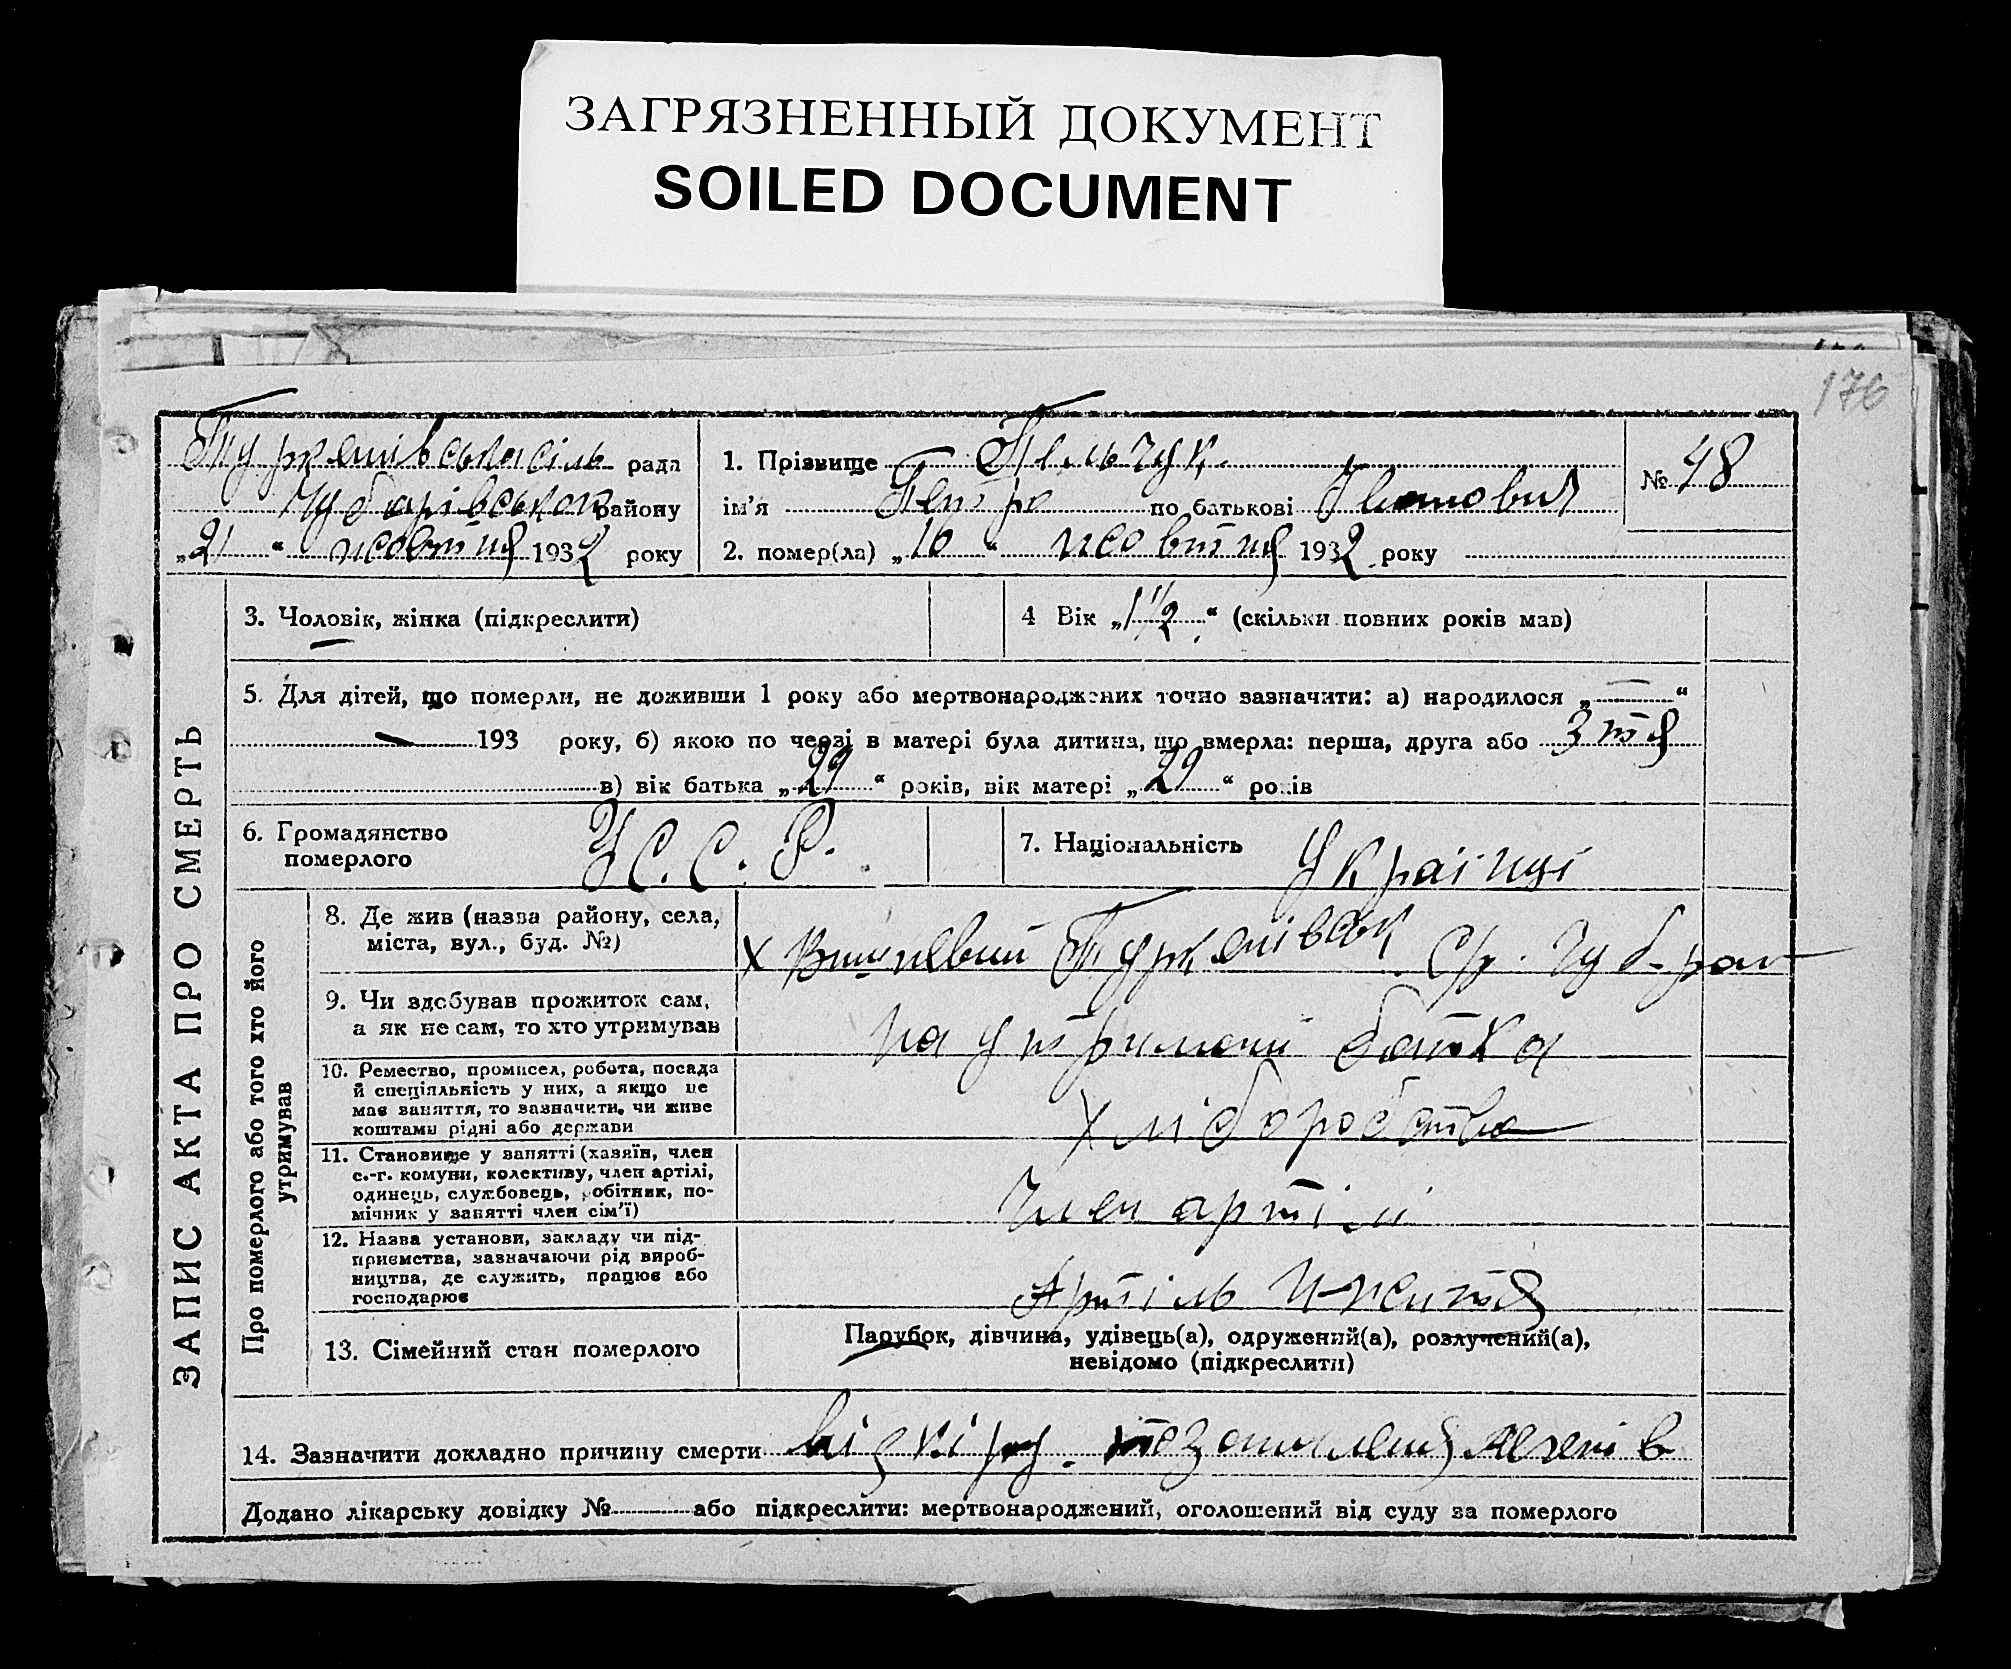 ЗАГРЯЗНЕННЫЙ ДОКУМЕНТ
SOILED DOCUMENT
176
ЗАПИС АКТА ПРО СМЕРТЬ
рада
Чубарівськог району
„21“ жовтня 1932 року
1. Прізвище Пельчук
ім'я Петро по батькові Іванович
№ 48
2. помер(ла) „16“ жовтня 1932 року
3. Чоловік, жінка (підкреслити)
4 Вік „1 1/2“ (скільки повних років мав)
5. Для дітей, що померли, не доживши 1 року або мертвонароджених точно зазначити: а) народилося „—“
— 193 року, б) якою по черзі в матері була дитина, що вмерла: перша, друга або 3 тя
в) вік батька „29“ років, вік матері „29“ років
6. Громадянство
померлого
У С. С. Р.
7. Національність
Українці
Про померлого або того хто його
утримував
8. Де жив (назва району, села,
міста, вул., буд. №)
х Вишневий Туркенівськ С/р. Чуб-рай
9. Чи здобував прожиток сам,
а як не сам, то хто утримував
на утриманні батька
10. Ремество, промисел, робота, посада
й спеціяльність у них, а якщо не
має заняття, то зазначити, чи живе
коштами рідні або держави
Хліборобство
11. Становище у занятті (хазяїн, член
с.-г. комуни, колективу, член артілі,
одинець, службовець, робітник, по-
мічник у занятті член сім'ї)
Член артілі
12. Назва установи, закладу чи під-
приємства, зазначаючи рід вироб-
ництва, де служить, працює або
господарює
Артіль Н-життя
13. Сімейний стан померлого
Парубок, дівчина, удівець(а), одружений(а), розлучений(а),
невідомо (підкреслити)
14. Зазначити докладно причину смерти від кіру. запалення легенів
Додано лікарську довідку № або підкреслити: мертвонароджений, оголошений від суду за померлого